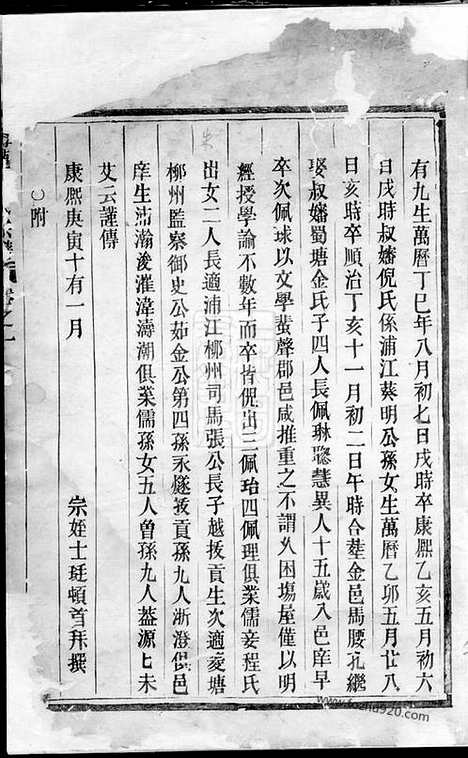 有九生萬曆丁巳年八月初七日戌時卒康熙乙亥五月初六
日戌時叔嬸倪氏係浦江葵明公孫女生萬曆乙卯五月廿八
日亥時卒順治丁亥十一月初二日午時合塟金邑馬腰孔繼
娶叔嬸蜀塘金氏子四人長佩琳聦慧異人十五歲入邑庠早
卒次佩球以文學蜚聲郡邑咸推重之不謂乆困塲屋僅以明
經授學論不數年而卒皆倪出三佩珆四佩理俱業儒妾程氏
出女二人長適浦江栁州司馬張公長子越拔貢生次適菱塘
栁州監察御史公茹金公第四孫永燧拔貢孫九人浙澄俱邑
庠生沛瀚浚漼湋濤潮俱業儒孫女五人曾孫九人葢源源未
艾云謹傳
康熙庚寅十有一月
宗姪士珽頓首拜撰
○附
卷之一
www.fozhu920.com